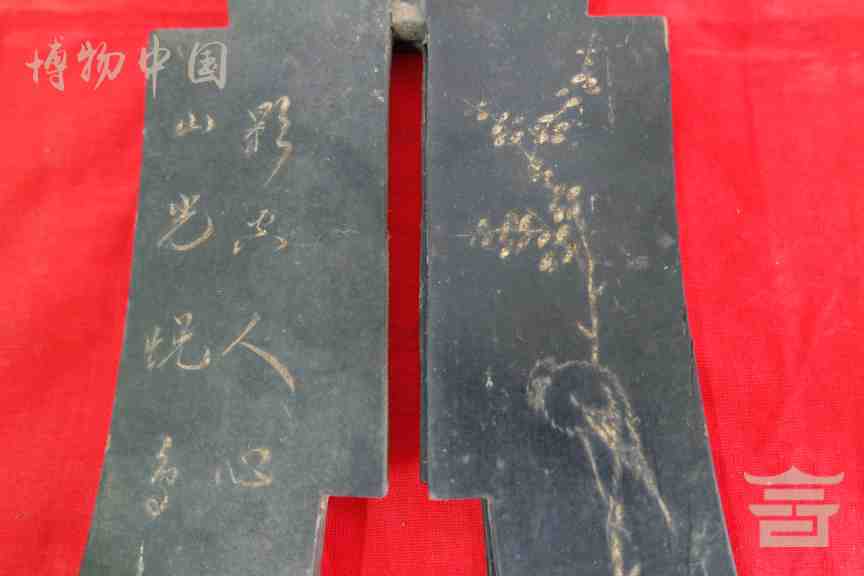 博物中国
山光悦鸟
影空人心